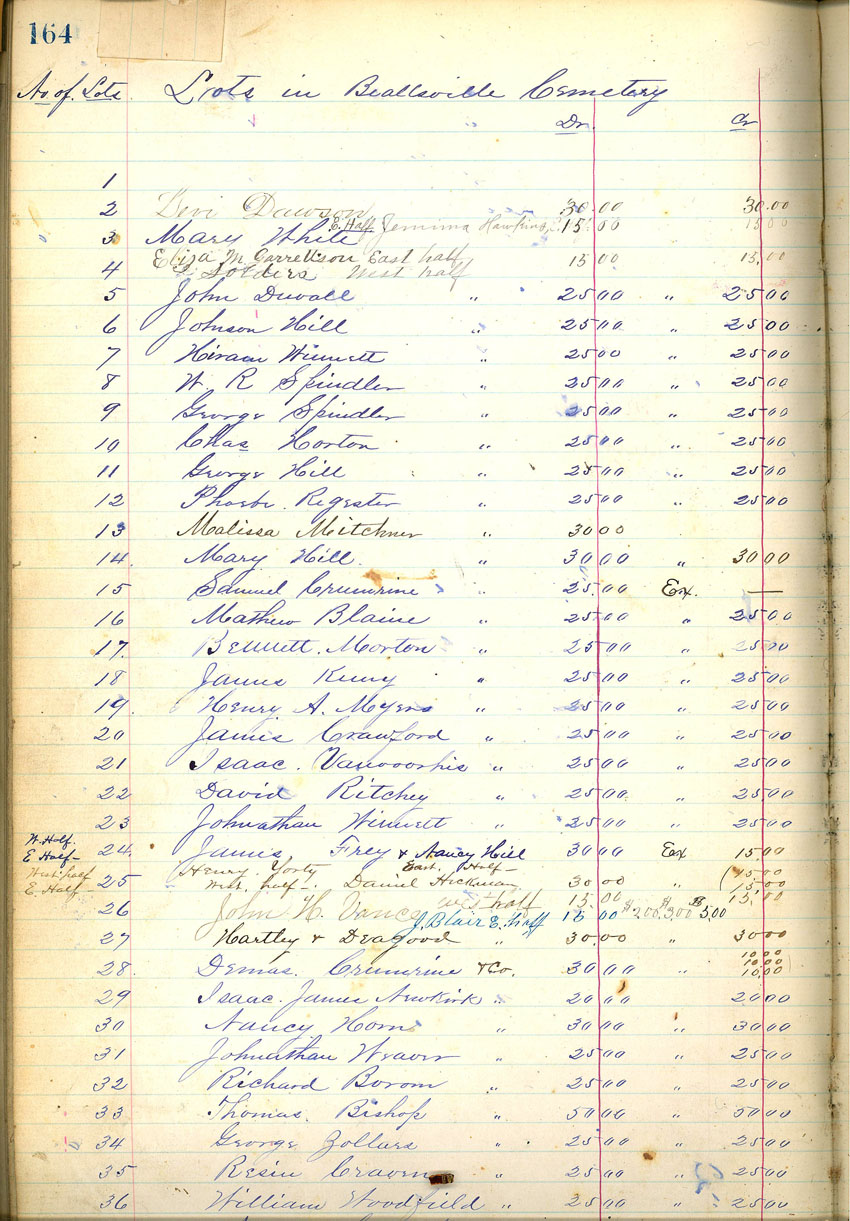 164
No of. Lots. Lots in Beallsville Cemetery
Dr. Cr
1
2 Levi Dawson 30.00 30.00
E. Half Jemima Hawkins 15.00 15 00
3 Mary White
Eliza M. Garrettson East half 15 00 15.00
4 Solders West half
5 John Duvall " 25 00 " 25 00
6 Johnson Hill " 25 00 " 25 00
7 Hiram Winnett " 25 00 " 25 00
8 W. R Spindler " 25 00 " 25 00
9 George Spindler " 25 00 " 25 00
10 Chas Horton " 25 00 " 25 00
11 George Hill " 25 00 " 25 00
12 Phoebe. Regester " 25 00 " 25 00
13 Malissa Mitchner " 30 00
14. Mary Hill. " 30 00 " 30 00
15 Samuel Crumrine " 25.00 Ex. —
16 Mathew Blaine " 25 00 " 25 00
17. Bennett. Morton " 25 00 " 25 00
18 James Kenny " 25 00 " 25 00
19. Henry A. Myers " 25 00 " 25 00
20 James Crawford " 25 00 " 25 00
21 Isaac. Vanvoorhis " 25 00 " 25 00
22 David Ritchey " 25 00 " 25 00
23 Johnathan Winnett " 25 00 " 25 00
W. Half.
E Half- 24. James Frey & Nancy Hill 30 00 Ex 15 00
East Half-
West half Henry. Yorty (15 00
E. Half- 25 West. half-. Daniel Hickman 30 00 " (15 00
26 John H. Vance west half 15.00 15.00
J. Blair E. half 15 00 $2.00 $3.00 $5.00
27 Hartley & Deagood " 30.00 " 30 00
10 00
10 00
28. Demas. Crumrine & Co. 30 00 " 10.00
29 Isaac. James Newkirk " 20 00 " 20 00
30 Nancy Horn " 30 00 " 30 00
31 Johnathan Weaver " 25 00 " 25 00
32 Richard Borom " 25 00 " 25 00
33 Thomas. Bishop " 50 00 " 50 00
34 George Zollars " 25 00 " 25 00
35 Resin Craven " 25 00 " 25 00
36 William Woodfield " 25 00 " 25 00